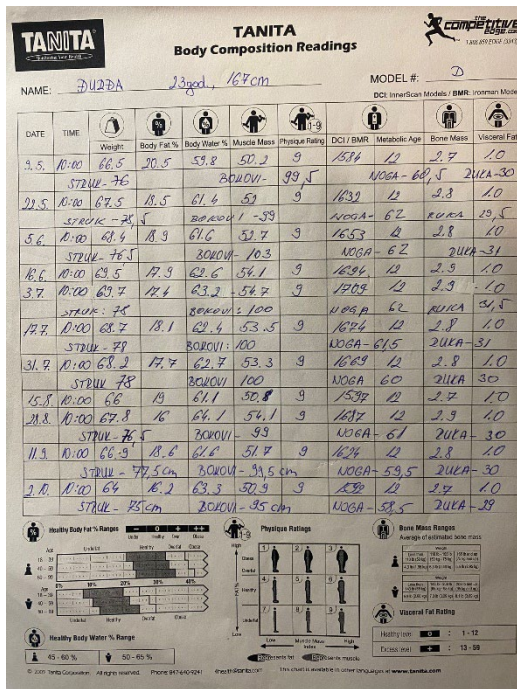 TANITA
TANITA
Body Composition Readings
the competitive edge.com
NAME: ĐURĐA 23god., 167cm MODEL #: D
DCI: InnerScan Models / BMR: Ironman Mode
DATE TIME Weight Body Fat % Body Water % Muscle Mass Physique Rating DCI / BMR Metabolic Age Bone Mass Visceral Fat
9.5. 10:00 66.5 20.5 59.8 50.2 9 1584 12 2.7 1.0
STRUK - 76 BOKOVI - 99,5 NOGA - 60,5 RUKA - 30
22.5. 10:00 67.5 18.5 61.4 52 9 1632 12 2.8 1.0
STRUK - 78,5 BOKOVI - 59 NOGA - 62 RUKA 29,5
5.6. 10:00 68.4 18.9 61.6 52.7 9 1653 12 2.8 1.0
STRUK - 76.5 BOKOVI - 103 NOGA - 62 RUKA - 31
16.6. 10:00 69.5 17.9 62.6 54.1 9 1694 12 2.9 1.0
3.7. 10:00 69.7 17.4 63.2 54.7 9 1709 12 2.9 1.0
STRUK: 78 BOKOVI: 100 NOGA 62 RUKA 31,5
17.7. 10:00 68.7 18.1 62.4 53.5 9 1674 12 2.8 1.0
STRUK - 78 BOKOVI: 100 NOGA - 61.5 RUKA - 31
31.7. 10:00 68.2 17.7 62.7 53.3 9 1669 12 2.8 1.0
STRUK 78 BOKOVI 100 NOGA 60 RUKA 30
15.8. 10:00 66 19 61.1 50,8 9 1597 12 2.7 1.0
28.8. 10:00 67.8 16 64.1 54.1 9 1687 12 2.9 1.0
STRUK - 76,5 BOKOVI - 99 NOGA - 61 RUKA - 30
11.9. 10:00 66.9 18.6 61.6 51.7 9 1624 12 2.8 1.0
STRUK - 77,5cm BOKOVI - 99,5cm NOGA - 59,5 RUKA - 30
2.10. 10:00 64 16.2 63.3 50.9 9 1592 12 2.7 1.0
STRUK - 75cm BOKOVI - 95cm NOGA - 58.5 RUKA - 29
Healthy Body Fat % Ranges
Physique Ratings
Bone Mass Ranges
Average of estimated bone mass
Visceral Fat Rating
Healthy Level 0 : 1 - 12
Excessive Level + : 13 - 59
Healthy Body Water % Range
45 - 60 % 50 - 65 %
Low Muscle Mass Index High
Represents fat Represents muscle
Tanita Corporation. All rights reserved. Phone: 847-640-9241 4health@tanita.com This chart is available in other languages at www.tanita.com